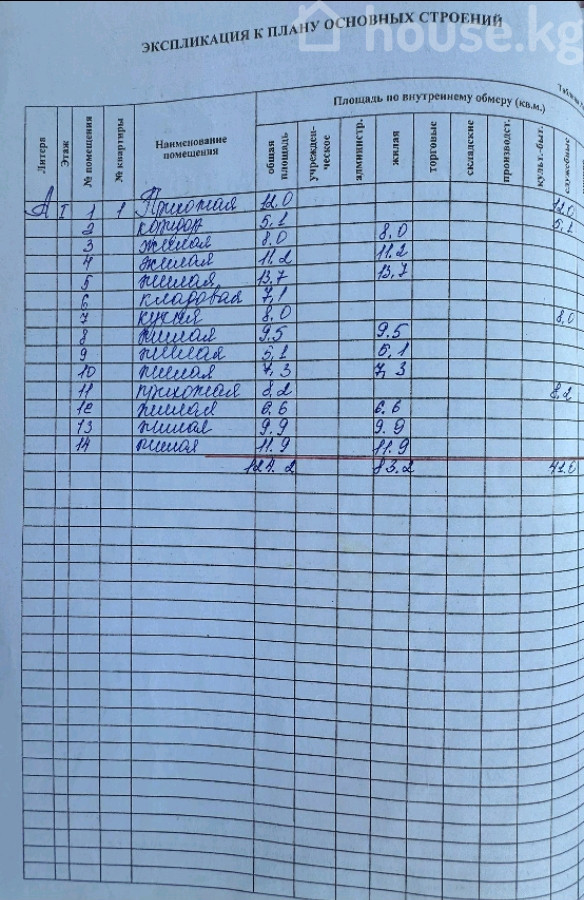 house.kg
ЭКСПЛИКАЦИЯ К ПЛАНУ ОСНОВНЫХ СТРОЕНИЙ
Литера Этаж № помещения № квартиры Наименование помещения Площадь по внутреннему обмеру (кв.м.)
общая площадь учрежден-ческое администр. жилая торговые складские производст. культ.-быт. служебные
А I 1 1 Прихожая 12.0 12.0
2 коридор 5,1 5,1
3 жилая 8.0 8.0
4 жилая 11.2 11.2
5 жилая 13,7 13,7
6 кладовая 7,1
7 кухня 8.0 8.0
8 жилая 9.5 9.5
9 жилая 5,1 5,1
10 жилая 7,3 7,3
11 прихожая 8.2 8.2
12 жилая 6.6 6.6
13 жилая 9.9 9.9
14 жилая 11.9 11.9
124.2 83.2 41.0